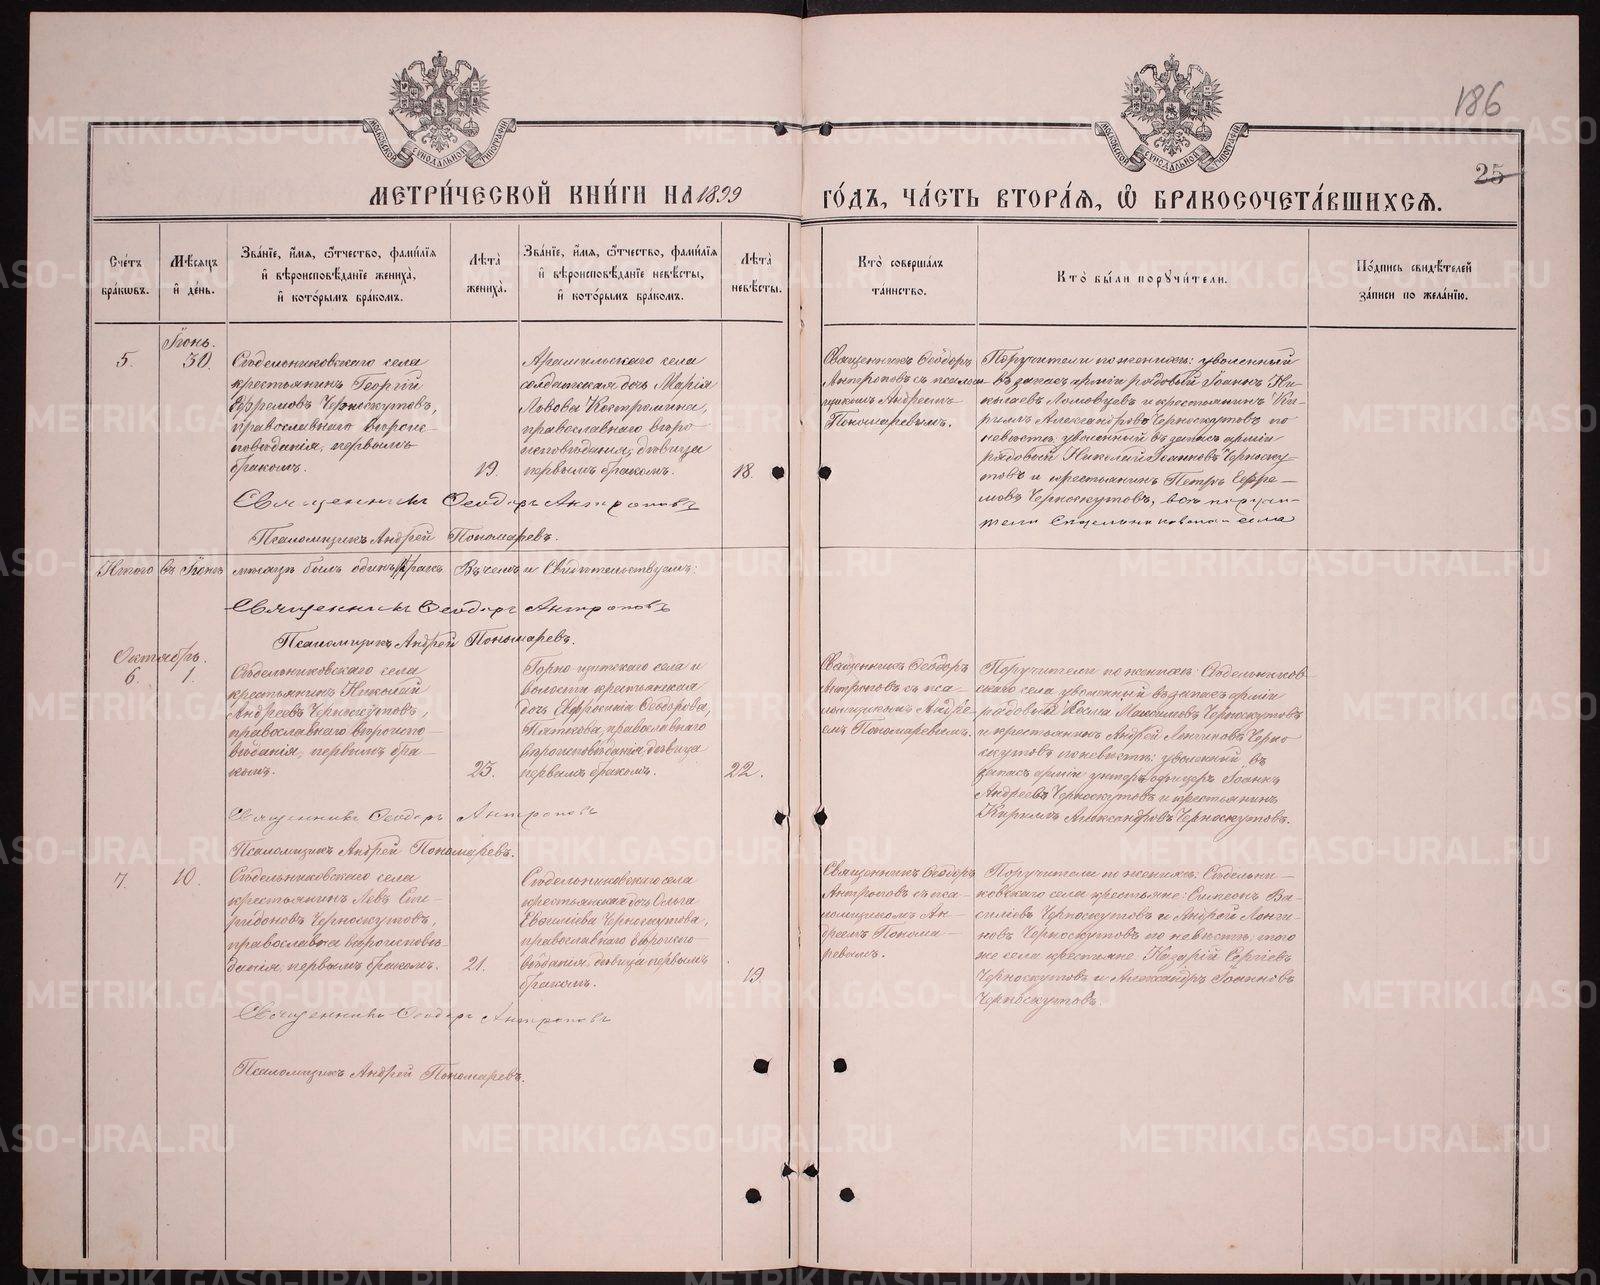 186
25
МОСКОВСКОЙ СѴНОДАЛЬНОЙ ТИПОГРАФІИ
МОСКОВСКОЙ СѴНОДАЛЬНОЙ ТИПОГРАФІИ
МЕТРИ́ЧЕСКОЙ КНИ́ГИ НА 1899 ГО́ДЪ, ЧА́СТЬ ВТОРА́Я, Ѡ БРАКОСОЧЕТА́ВШИХСЯ.
Сче́тъ бра́кѡвъ.
Мѣ́сяцъ и҆ де́нь.
Зва́нїе, и҆́мя, ѻ҆́тчество, фами́лїя
и҆ вѣроисповѣ́данїе жениха̀,
и҆ кото́рымъ бра́комъ.
Лѣ́та̀
жениха̀.
Зва́нїе, и҆́мя, ѻ҆́тчество, фами́лїя
и҆ вѣроисповѣ́данїе невѣ́сты,
и҆ кото́рымъ бра́комъ.
Лѣ́та̀
невѣ́сты.
Кто̀ соверша́лъ
та́инство.
Кто̀ бы́ли порꙋчи́тели.
По́дпись свидѣ́телей
за́писи по жела́нїю.
5.
Іюнь.
30.
Сѣдельниковскаго села
крестьянинъ Георгій
Ефремовъ Черноскутовъ,
православнаго вѣроис
повѣданія, первымъ
бракомъ.
19.
Арамильскаго села
солдатская дочь Марія
Львова Костромина,
православнаго вѣро-
исповѣданія, дѣвица
первымъ бракомъ.
18.
Священникъ Ѳеодоръ
Антроповъ съ псалом-
щикомъ Андреемъ
Пономаревымъ.
Поручители по женихѣ: уволенный
въ запасъ арміи рядовый Іоаннъ Ни-
колаевъ Ломовцевъ и крестьянинъ Ки-
риллъ Александровъ Черноскутовъ по
невѣстѣ: уволенный въ запасъ арміи
рядовый Николай Іоанновъ Черноску-
товъ и крестьянинъ Петръ Ефре-
мовъ Черноскутовъ, всѣ поручи-
тели Сѣдельниковскаго села
Священникъ Ѳеодоръ Антроповъ
Псаломщикъ Андрей Пономаревъ.
Итого въ Іюнѣ мѣсяцѣ былъ одинъ /1/ бракъ. Въ чемъ и Свидѣтельствуемъ:
Священникъ Ѳеодоръ Антроповъ
Псаломщикъ Андрей Пономаревъ.
Октябрь.
6.
1.
Сѣдельниковскаго села
крестьянинъ Николай
Андреевъ Черноскутовъ,
православнаго вѣроиспо-
вѣданія, первымъ бра-
комъ.
23.
Горно щитскаго села и
волости крестьянская
дочь Евфросинія Ѳеодорова
Пяткова, православнаго
вѣроисповѣданія дѣвица
первымъ бракомъ.
22.
Священникъ Ѳеодоръ
Антроповъ съ пса-
ломщикомъ Андре-
емъ Пономаревымъ.
Поручители по женихѣ: Сѣдельников-
скаго села уволенный въ запасъ арміи
рядовый Косма Максимовъ Черноскутовъ
и крестьянинъ Андрей Лонгиновъ Черно
скутовъ по невѣстѣ: уволенный въ
запасъ арміи унтеръ офицеръ Іоаннъ
Андреевъ Черноскутовъ и крестьянинъ
Кириллъ Александровъ Черноскутовъ.
Священникъ Ѳеодоръ Антроповъ
Псаломщикъ Андрей Пономаревъ.
7.
10.
Сѣдельниковскаго села
крестьянинъ Левъ Спи-
ридоновъ Черноскутовъ,
православнаго вѣроисповѣ-
данія, первымъ бракомъ.
21.
Сѣдельниковскаго села
крестьянская дочь Ольга
Евсигнѣева Черноскутова,
православнаго вѣроиспо-
вѣданія, дѣвица первымъ
бракомъ.
19.
Священникъ Ѳеодоръ
Антроповъ съ пса-
ломщикомъ Ан-
дреемъ Понома-
ревымъ.
Поручители по женихѣ: Сѣдельни-
ковскаго села крестьяне: Симеонъ Ва-
силіевъ Черноскутовъ и Андрей Лонги-
новъ Черноскутовъ по невѣстѣ: того
же села крестьяне: Назарій Сергіевъ
Черноскутовъ и Александръ Іоанновъ
Черноскутовъ.
Священникъ Ѳеодоръ Антроповъ
Псаломщикъ Андрей Пономаревъ.
METRIKI.GASO-URAL.RU